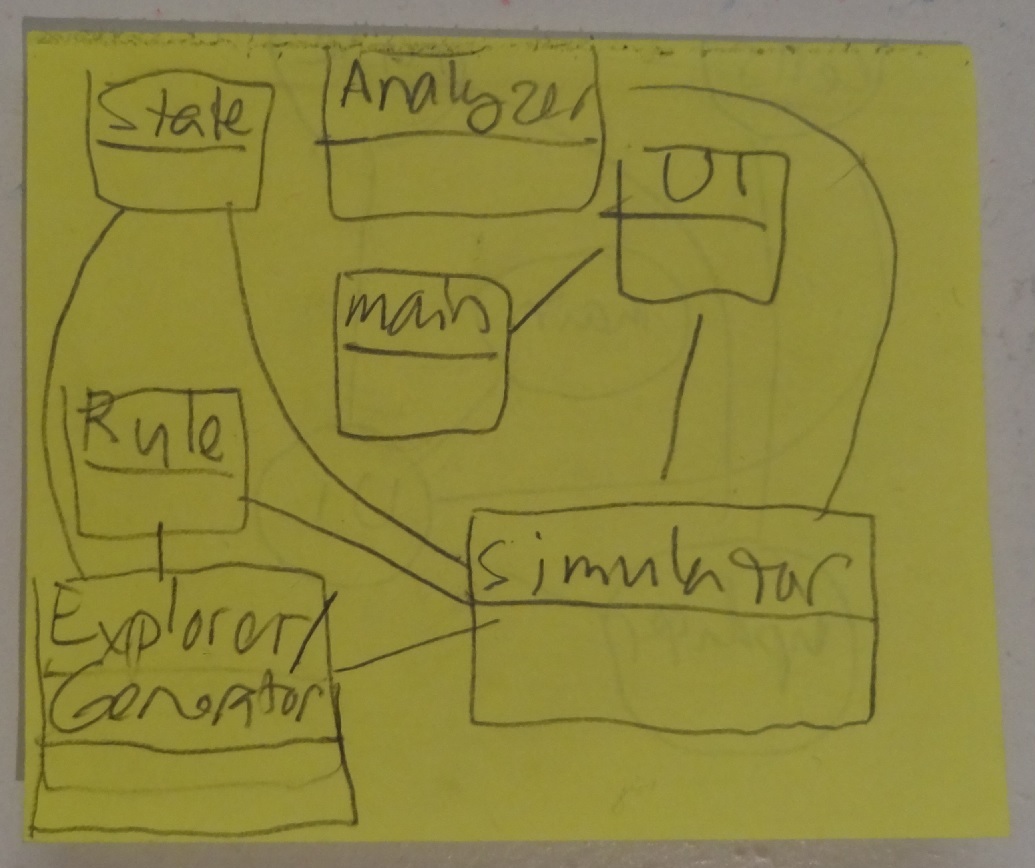 State
Analyzer
UI
main
Rule
Simulator
Explorer/
Generator